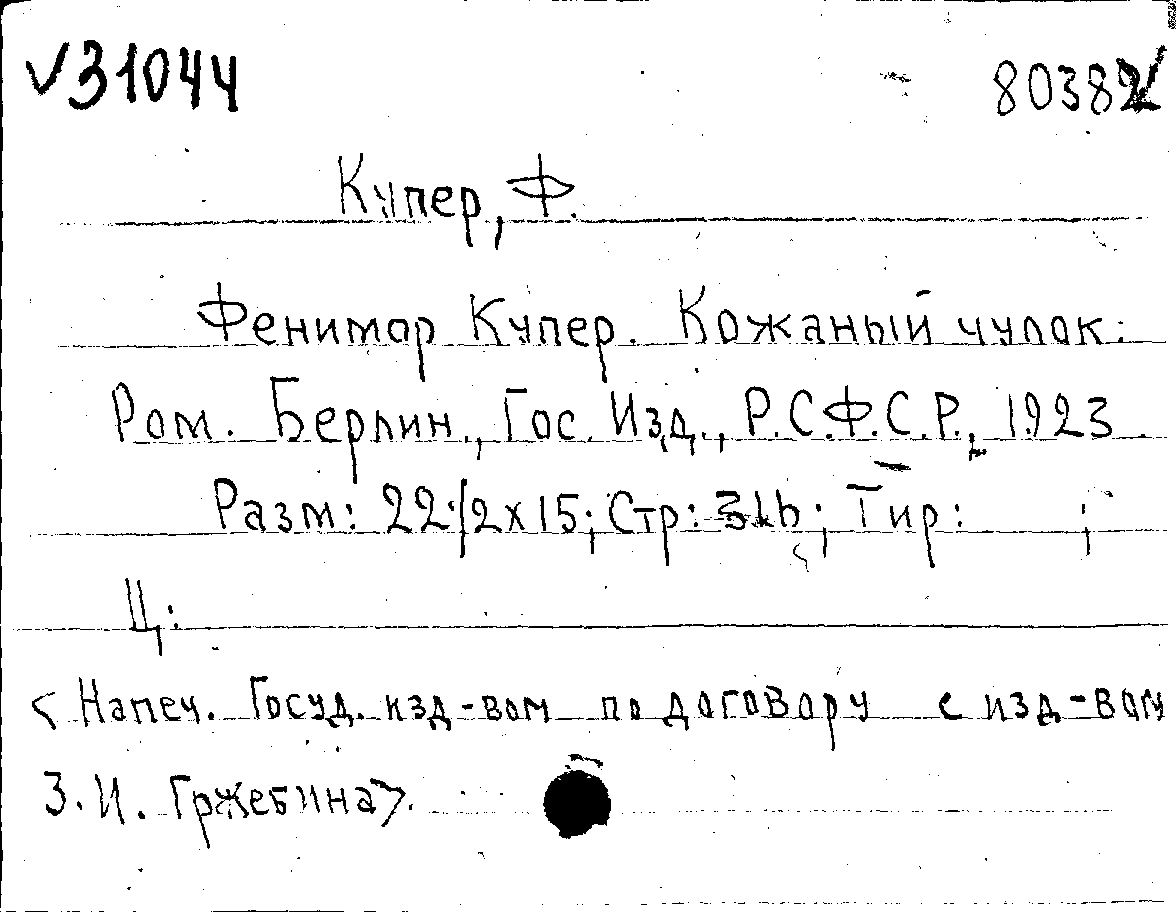 √31044 80382√
Купер, Ф.
Фенимор Купер. Кожаный чулок.
Ром. Берлин., Гос. Изд., Р.С.Ф.С.Р., 1923
Разм: 22 1/2 x 15; Стр: ; Тир: ;
Ц:
<Напеч. Госуд. изд-вом по договору с изд-вом
З. И. Гржебина>.